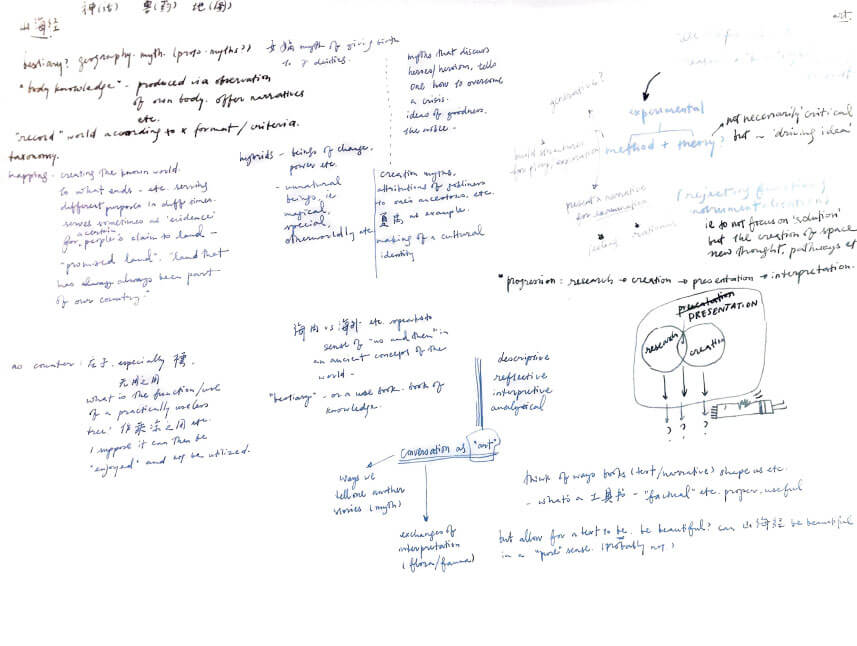 神(话) 兽(药) 地(图)
山海经
art.
bestiary? geography. myth. (proto-myths?)
"body knowledge" - produced via observation
of own body. offer narratives
etc.
"record" world according to x format/criteria.
taxonomy.
mapping - creating the known world.
to what ends - etc. serving
different purposes in diff times.
serves sometimes as 'evidence'
for a certain people's claim to land -
"promised land". "land that
has always always been part
of our country."
myth of giving birth
to 7 deities.
hybrids - beings of change,
power etc.
- unnatural
beings, ie
magical,
special,
otherworldly etc
myths that discuss
heroes/heroism, tells
one how to overcome
a crisis.
ideas of goodness,
the noble -
creation myths,
attributions of godliness
to one's ancestors, etc.
as example.
making of a cultural
identity
generative?
experimental
method + theory?
not necessarily 'critical'
but ~ 'driving idea'
build structures
for
present a narrative
for examination
(rejecting function,
instrumentalization)
ie do not focus on 'solution'
but the creation of space
new thought, pathways et
*progression: research → creation → presentation → interpretation.
PRESENTATION
research
creation
? ? ?
海内 vs 海外 etc. speaks to
sense of "us and them" in
an ancient concept of the
world -
"bestiary" - or a use book. book of
knowledge.
descriptive
reflective
interpretive
analytical
as counter: 庄子. especially
无用之用
what is the function/use
of a practically useless
tree? etc.
I suppose it can then be
"enjoyed" and not be utilized.
conversation as "art"
ways we
tell one another
stories (myth)
exchanges of
interpretation
(flora/fauna)
think of ways books (text/narrative) shape us etc.
- what's a 工具书 - "factual" etc. proper, useful
but allow for a text to be. be beautiful? can 山海经 be beautiful
in a "pure" sense. (probably not)